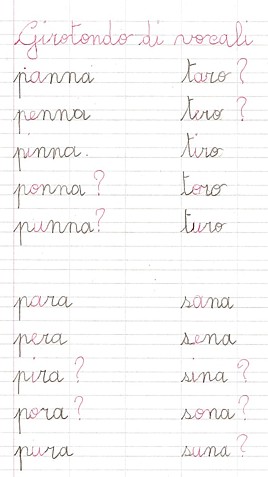 Girotondo di vocali
panna taro ?
penna tero ?
pinna. tiro
ponna ? toro
punna? turo
para sana
pera sena
pira ? sina ?
pora ? sona ?
pura suna ?